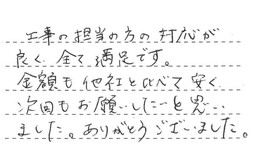 工事の担当の方の対応が
良く全て満足です。
金額も他社と比べて安く
次回もお願いしたいと思い
ました。ありがとうございました。